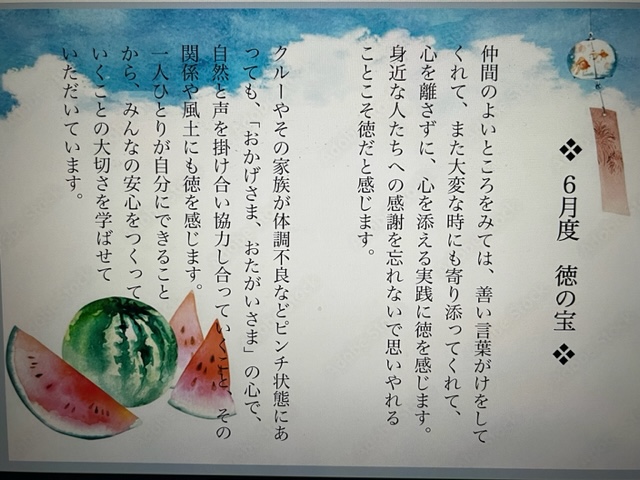 ❖ 6月度 徳の宝 ❖
仲間のよいところをみては、善い言葉がけをして
くれて、また大変な時にも寄り添ってくれて、
心を離さずに、心を添える実践に徳を感じます。
身近な人たちへの感謝を忘れないで思いやれる
ことこそ徳だと感じます。
クルーやその家族が体調不良などピンチ状態にあ
っても、「おかげさま、おたがいさま」の心で、
自然と声を掛け合い協力し合っていくこと、その
関係や風土にも徳を感じます。
一人ひとりが自分にできること
から、みんなの安心をつくって
いくことの大切さを学ばせて
いただいています。